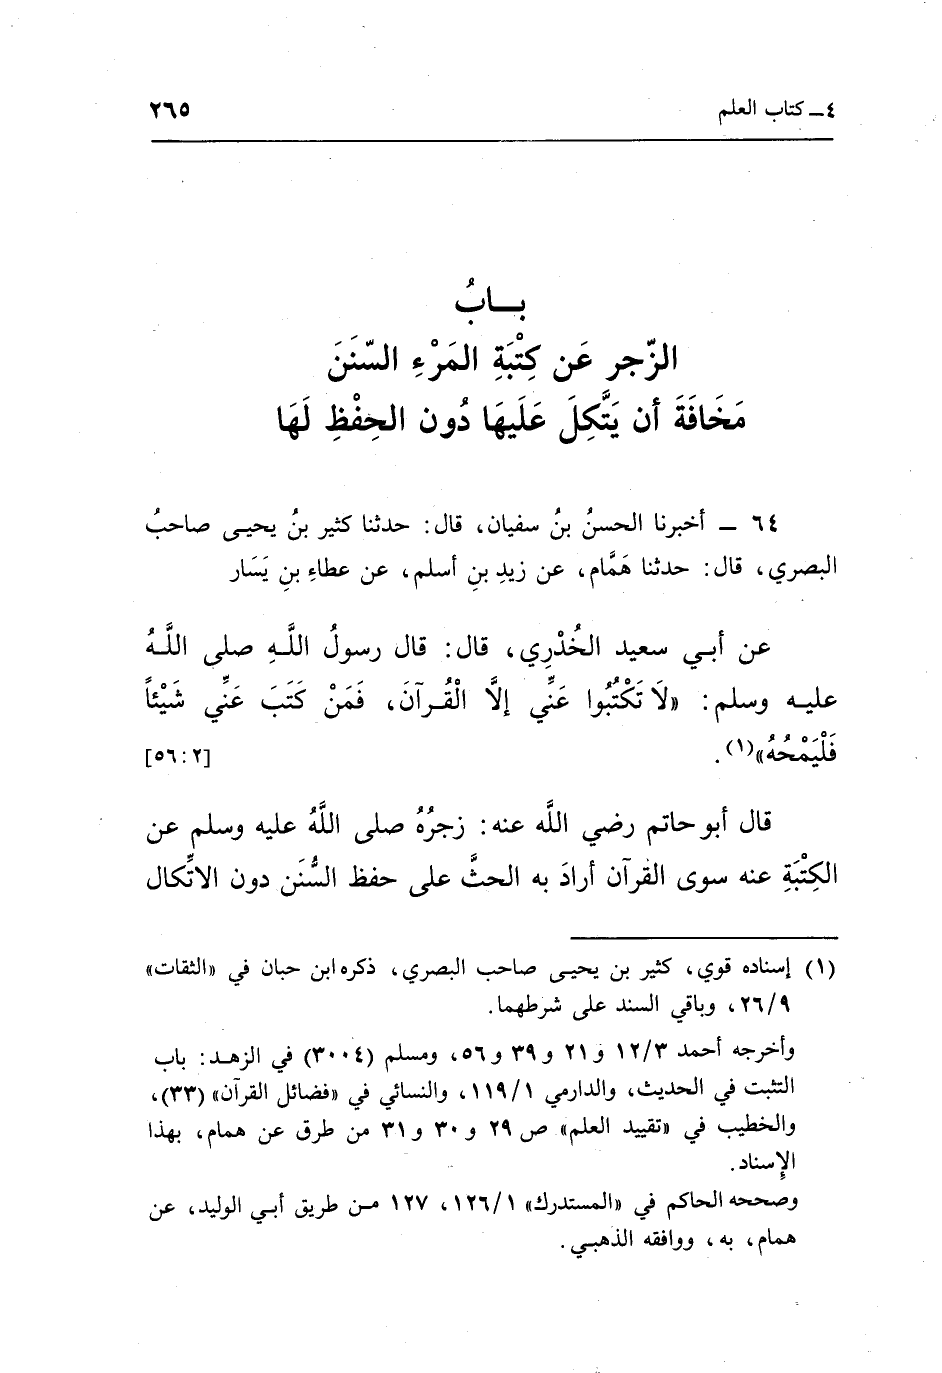 ٤ ـ كتاب العلم ٢٦٥
بـــابُ
الزّجر عَن كِتْبَةِ المَرْءِ السّنَنَ
مَخَافَةَ أن يَتَّكِلَ عَلَيهَا دُون الحِفْظِ لَهَا
٦٤ ـ أخبرنا الحسنُ بنُ سفيان، قال: حدثنا كثير بنُ يحيـى صاحبُ
البصري، قال: حدثنا هَمَّام، عن زيدِ بنِ أسلم، عن عطاءِ بنِ يَسَار
عن أبـي سعيد الخُدْرِي، قال: قال رسولُ اللَّهِ صلى اللَّهُ
عليـه وسلم: «لَا تَكْتُبُوا عَنِّي إلاَّ الْقُـرآنَ، فَمَنْ كَتَبَ عَنِّي شَيْئاً
فَلْيَمْحُهُ»(١). [٢:٥٦]
قال أبو حاتم رضي اللَّه عنه: زجرُهُ صلى اللَّهُ عليه وسلم عن
الكِتْبَةِ عنه سوى القرآن أرادَ به الحثَّ على حفظ السُّنَن دون الاتِّكال
(١) إسناده قوي، كثير بن يحيـى صاحب البصري، ذكره ابن حبان في «الثقات»
٢٦/٩، وباقي السند على شرطهما.
وأخرجه أحمد ١٢/٣ و ٢١ و ٣٩ و ٥٦، ومسلم (٣٠٠٤) في الزهـد: باب
التثبت في الحديث، والدارمي ١١٩/١، والنسائي في «فضائل القرآن» (٣٣)،
والخطيب في «تقييد العلم» ص ٢٩ و ٣٠ و ٣١ من طرق عن همام، بهذا
الإسناد.
وصححه الحاكم في «المستدرك» ١٢٦/١، ١٢٧ مـن طريق أبـي الوليد، عن
همام، به، ووافقه الذهبـي.